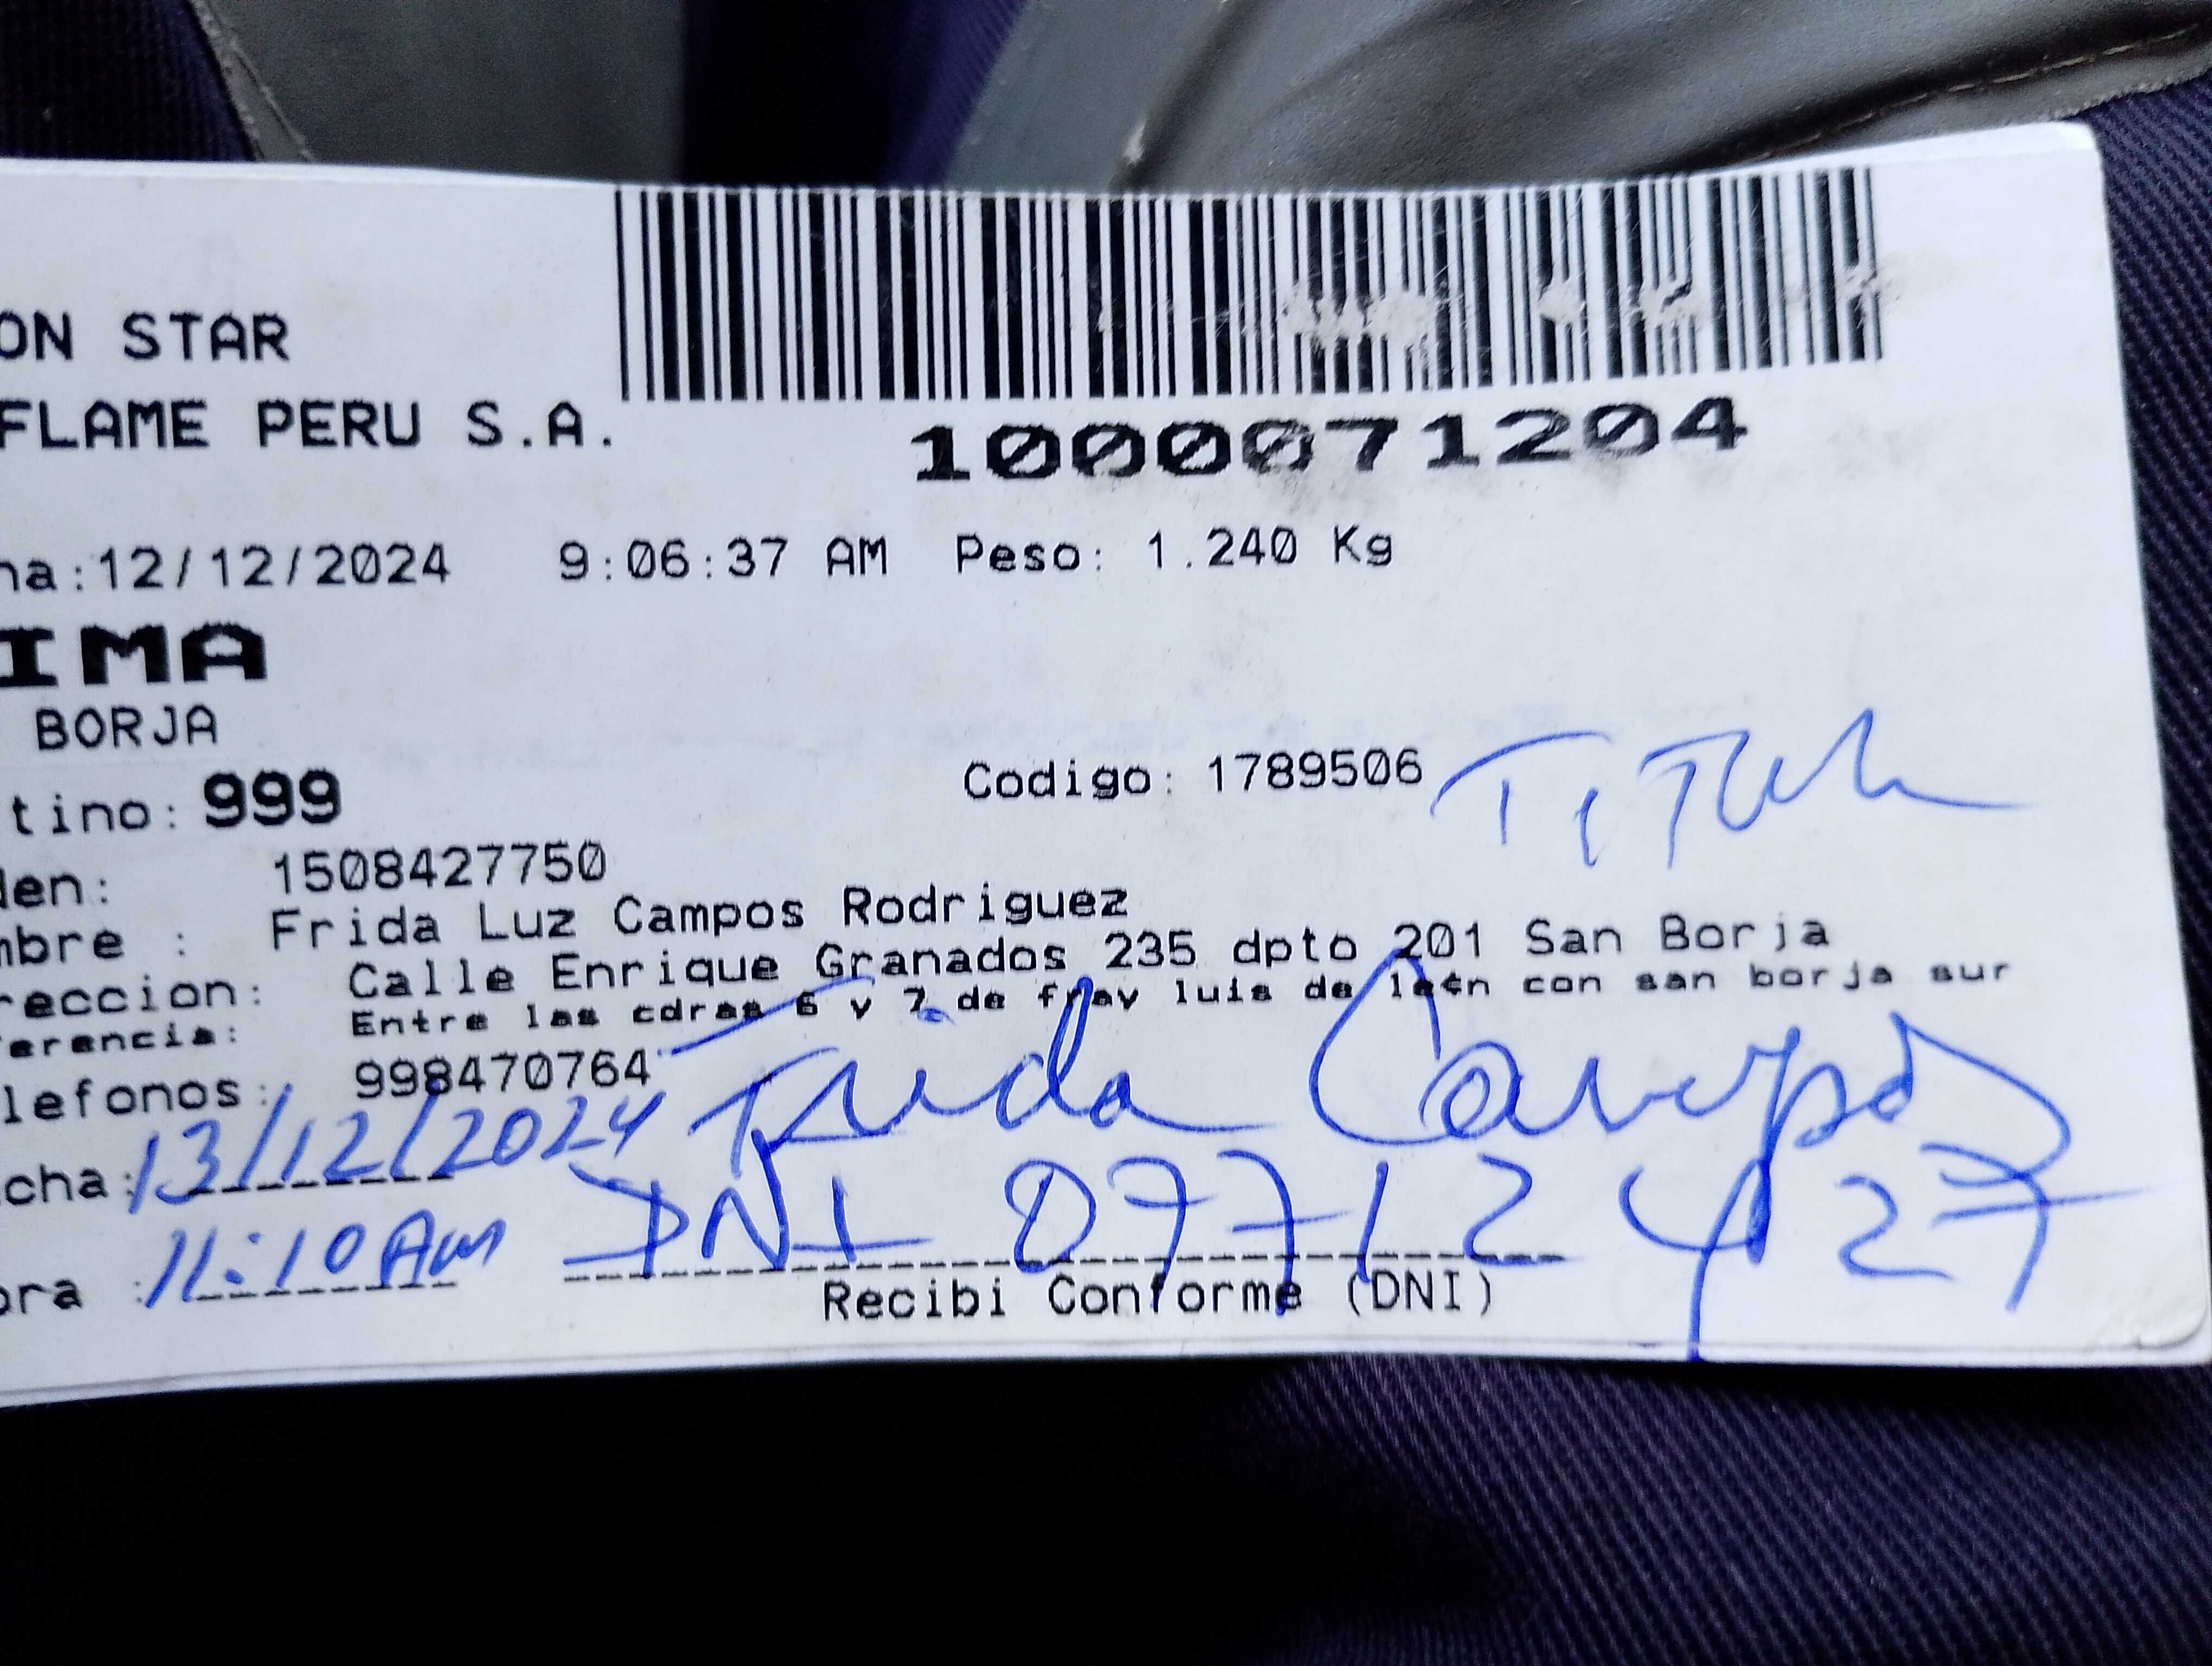 ON STAR
FLAME PERU S.A.
1000071204
ha:12/12/2024 9:06:37 AM Peso: 1.240 Kg
IMA
BORJA
tino: 999 Codigo: 1789506 TiTular
den: 1508427750
mbre : Frida Luz Campos Rodriguez
reccion: Calle Enrique Granados 235 dpto 201 San Borja
erencia: Entre las cdras 6 y 7 de fray luis de le¢n con san borja sur
lefonos: 998470764
Frida Campos
cha: 13/12/2024
DNI 07712427
ora : 11:10 Am
Recibi Conforme (DNI)